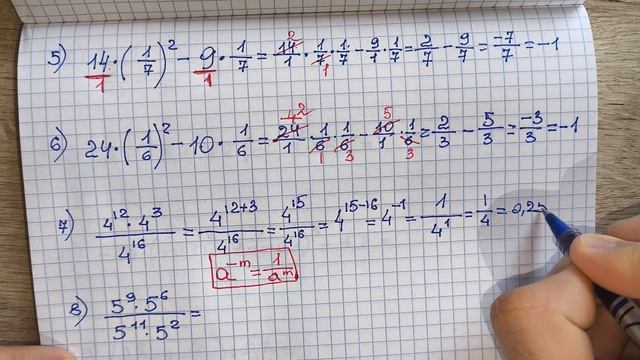 5) 14/1 · (1/7)² − 9/1 · 1/7 = 14/1 · 1/7 · 1/7 − 9/1 · 1/7 = 2/7 − 9/7 = −7/7 = −1
6) 24 · (1/6)² − 10 · 1/6 = 24/1 · 1/6 · 1/6 − 10/1 · 1/6 = 2/3 − 5/3 = −3/3 = −1
7) (4¹² · 4³)/4¹⁶ = 4¹²⁺³/4¹⁶ = 4¹⁵/4¹⁶ = 4¹⁵⁻¹⁶ = 4⁻¹ = 1/4¹ = 1/4 = 0,25
a⁻ᵐ = 1/aᵐ
8) (5⁹ · 5⁶)/(5¹¹ · 5²) =